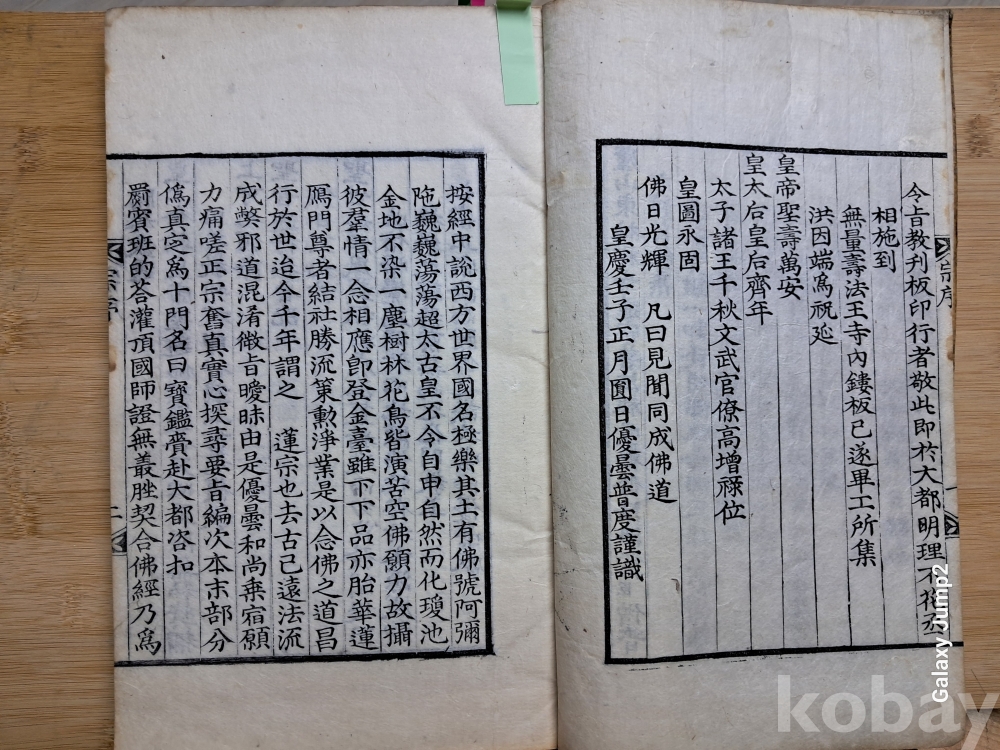 令㫖教刋板印行者敬此即於大都明理不花丞
相施到
無量壽法王寺內鏤板已遂畢工所集
洪因端爲祝延
皇帝聖壽萬安
皇太后皇后齊年
太子諸王千秋文武官僚高增祿位
皇圖永固
佛日光輝 凡曰見聞同成佛道
皇慶壬子正月圓日優曇普度謹識
宗序
一
按經中說西方世界國名極樂其土有佛號阿彌
陁巍巍蕩蕩超太古皇不令自申自然而化瓊池
金地不染一塵樹林花鳥皆演苦空佛願力故攝
彼羣情一念相應卽登金臺雖下下品亦胎華蓮
鴈門尊者結社勝流策勲淨業是以念佛之道昌
行於世迨今千年謂之 蓮宗也去古已遠法流
成獘邪道混淆微㫖曖昧由是優曇和尚乗宿願
力痛嗟正宗奮真實心探尋要㫖編次本末部分
僞真㝎爲十門名曰寳鑑賷赴大都咨扣
罽賓班的荅灌頂國師證無叢脞契合佛經乃爲
宗序
二
Galaxy Jump2
kobay